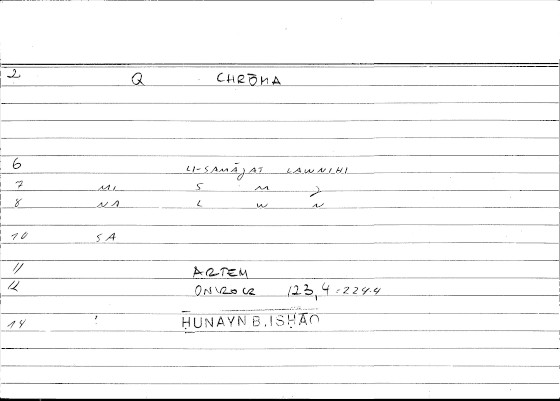 2 Q CHRŌMA
6 LI-SAMĀJAT LAWNIHI
7 MI S M J
8 NA L W N
10 SA
11 ARTEM
12 ONIROCR 123,4=224.4
14 HUNAYN B. ISHĀQ